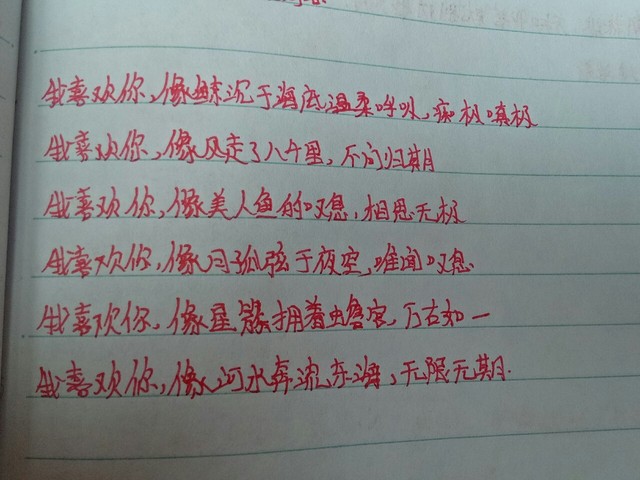 我喜欢你,像鲸沉于海底温柔呼吸,痴极嗔极
我喜欢你,像风走了八千里,不问归期
我喜欢你,像美人鱼的叹息,相思无极
我喜欢你,像月孤弦于夜空,唯闻叹息.
我喜欢你,像星髎拥着蟾宫,万古如一
我喜欢你,像河水奔流东海,无限无期.